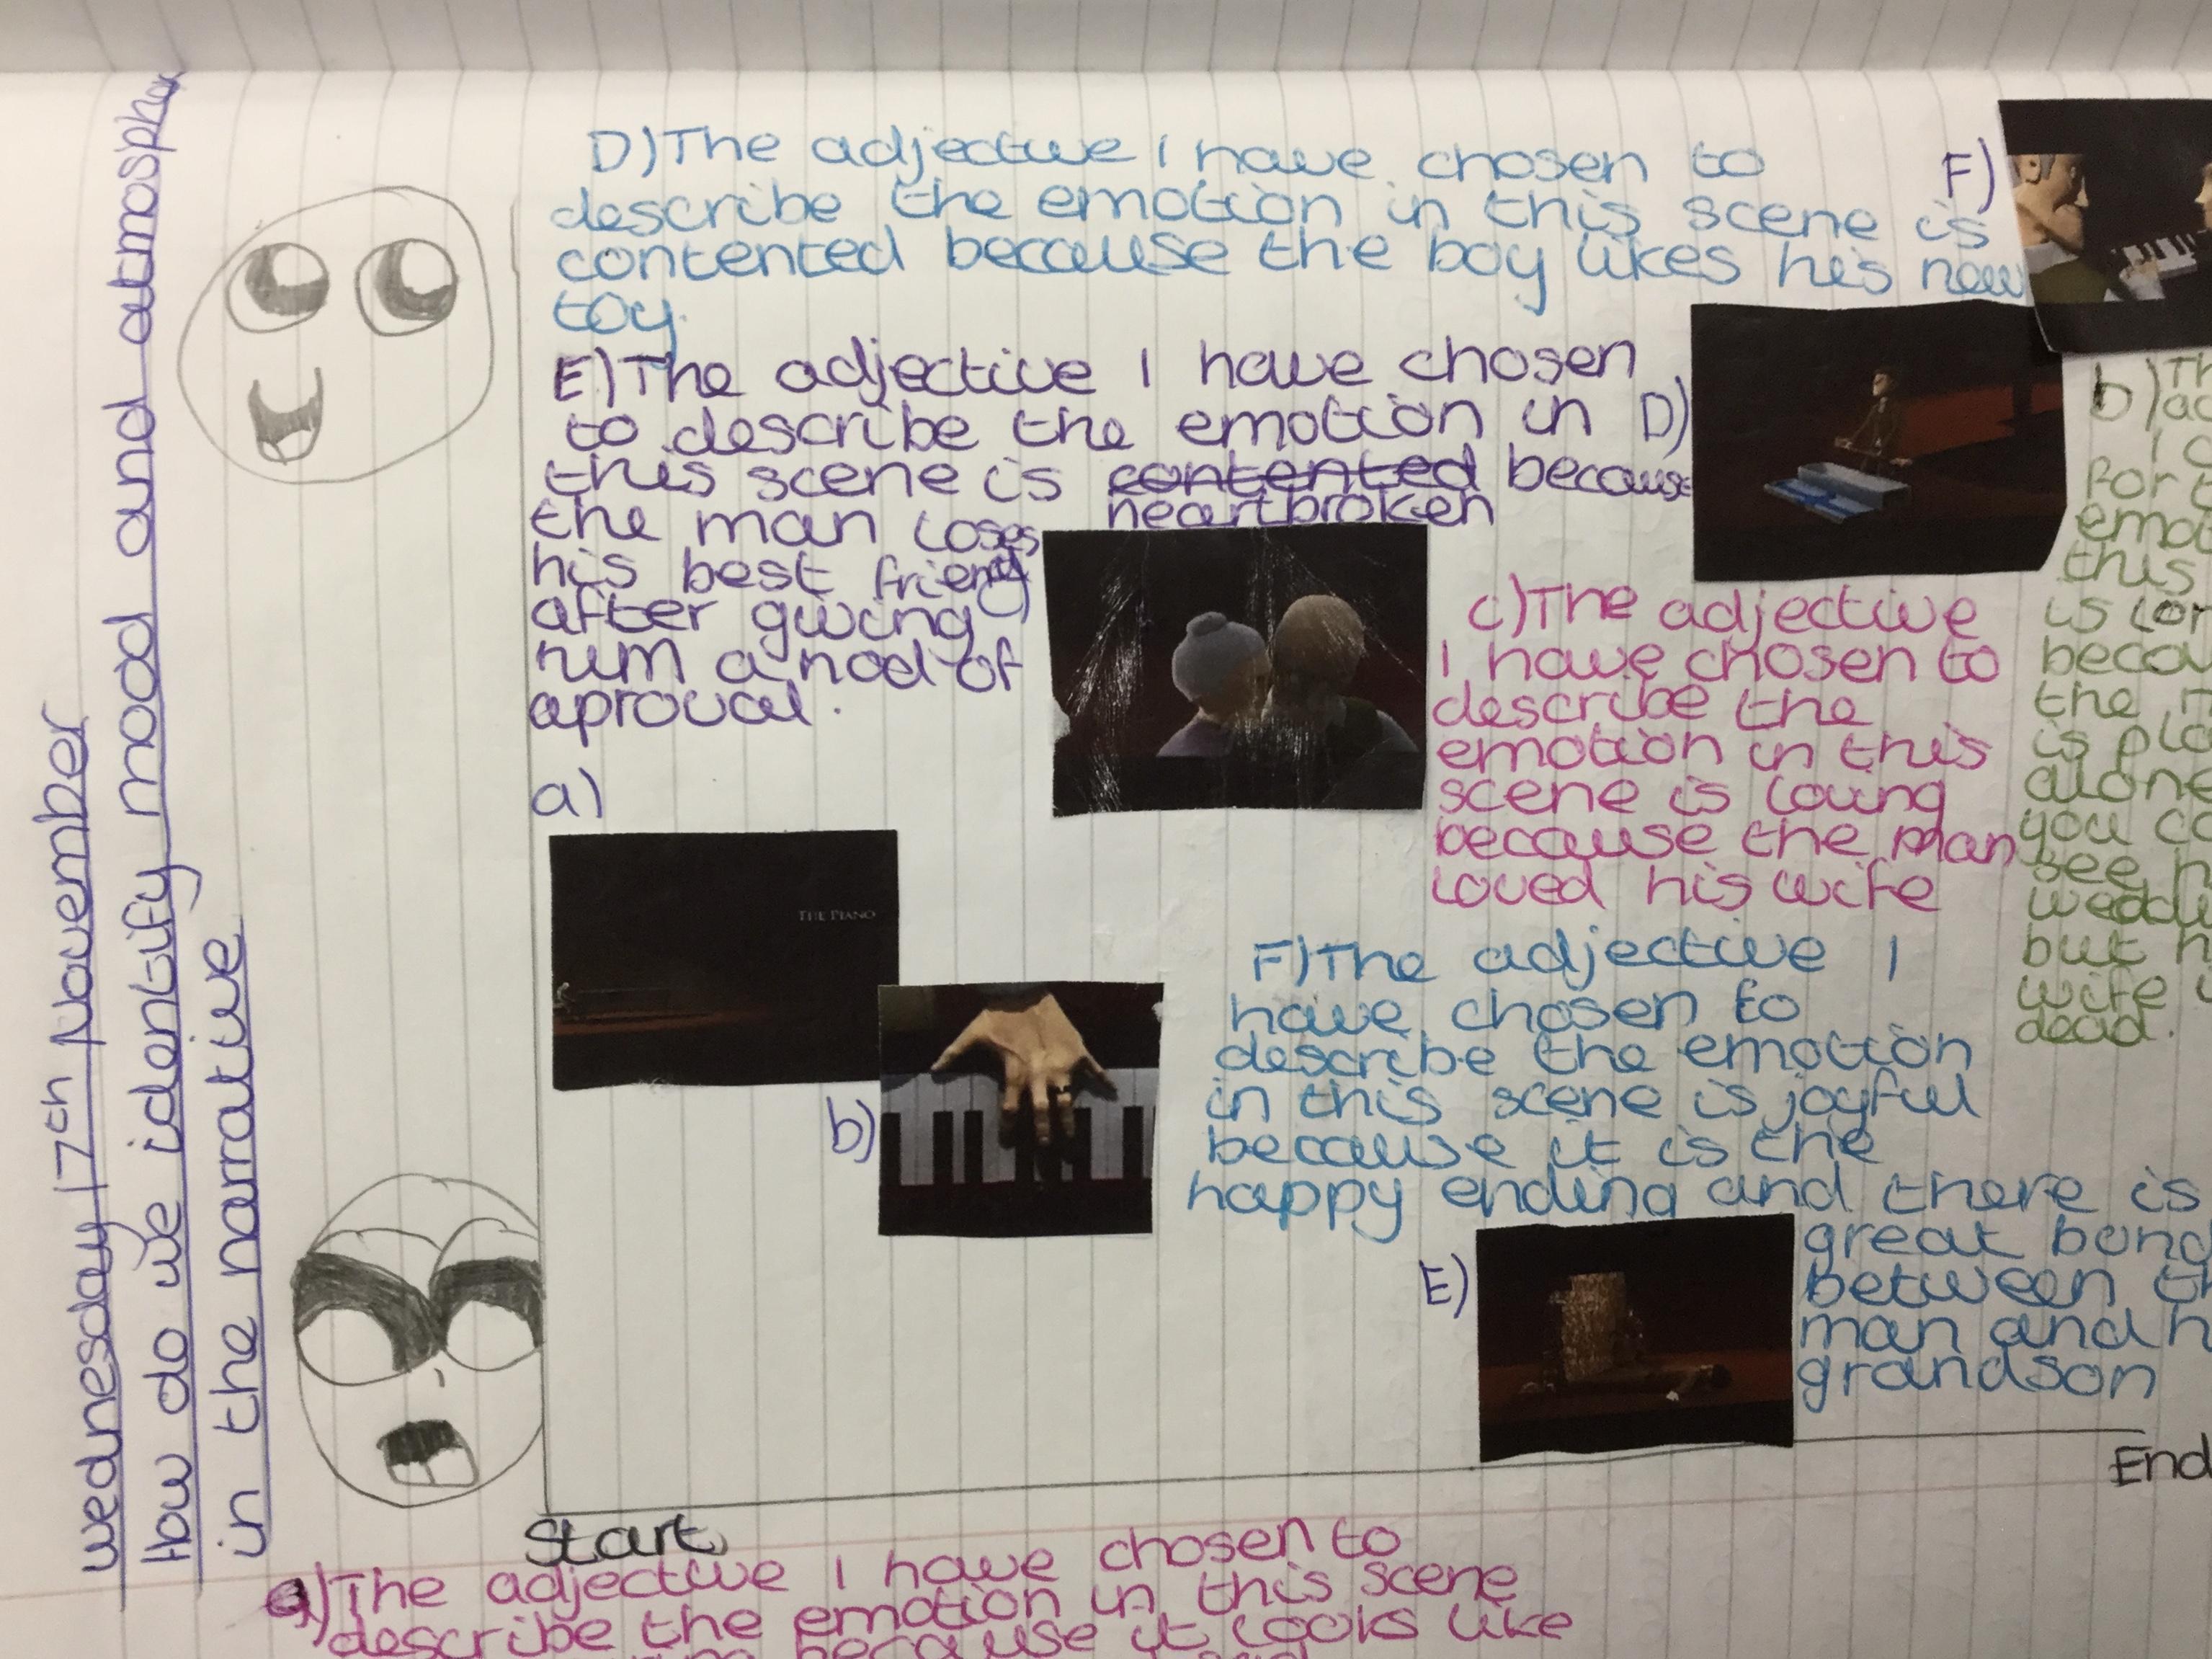 Wednesday 17th November
How do we identify mood and atmospher
in the narrative
D) The adjective I have chosen to
describe the emotion in this scene is
contented because the boy likes his new
toy.
E) The adjective I have chosen
to describe the emotion in
this scene is contented because
heartbroken
the man loses
his best friend
after giving
him a nod of
aproval.
F)
D)
C)
C) The adjective
I have chosen to
describe the
emotion in this
scene is loving
because the man
loved his wife
b)
I
for
this
is
the
is
alone
you
see
but
wife
dead.
a)
THE PIANO
b)
F) The adjective I
have chosen to
describe the emotion
in this scene is joyful
because it is the
happy ending and there is
great bond
between
man and
grandson
E)
End
Start
a) The adjective I have chosen to
describe the emotion in this scene
because it looks like